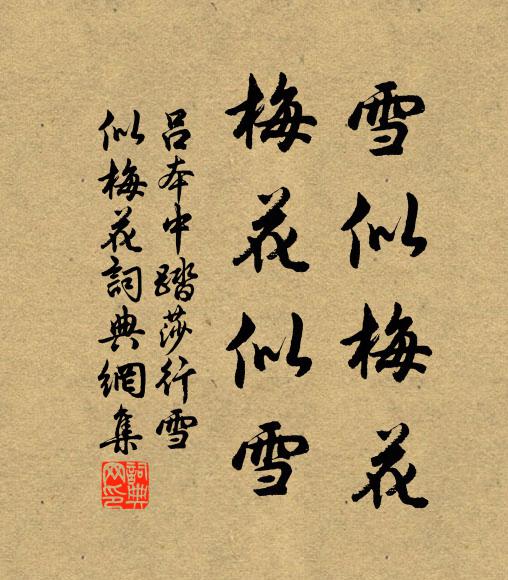 雪似梅花
梅花似雪
吕本中踏莎行雪
似梅花詞典網集
詞典网印